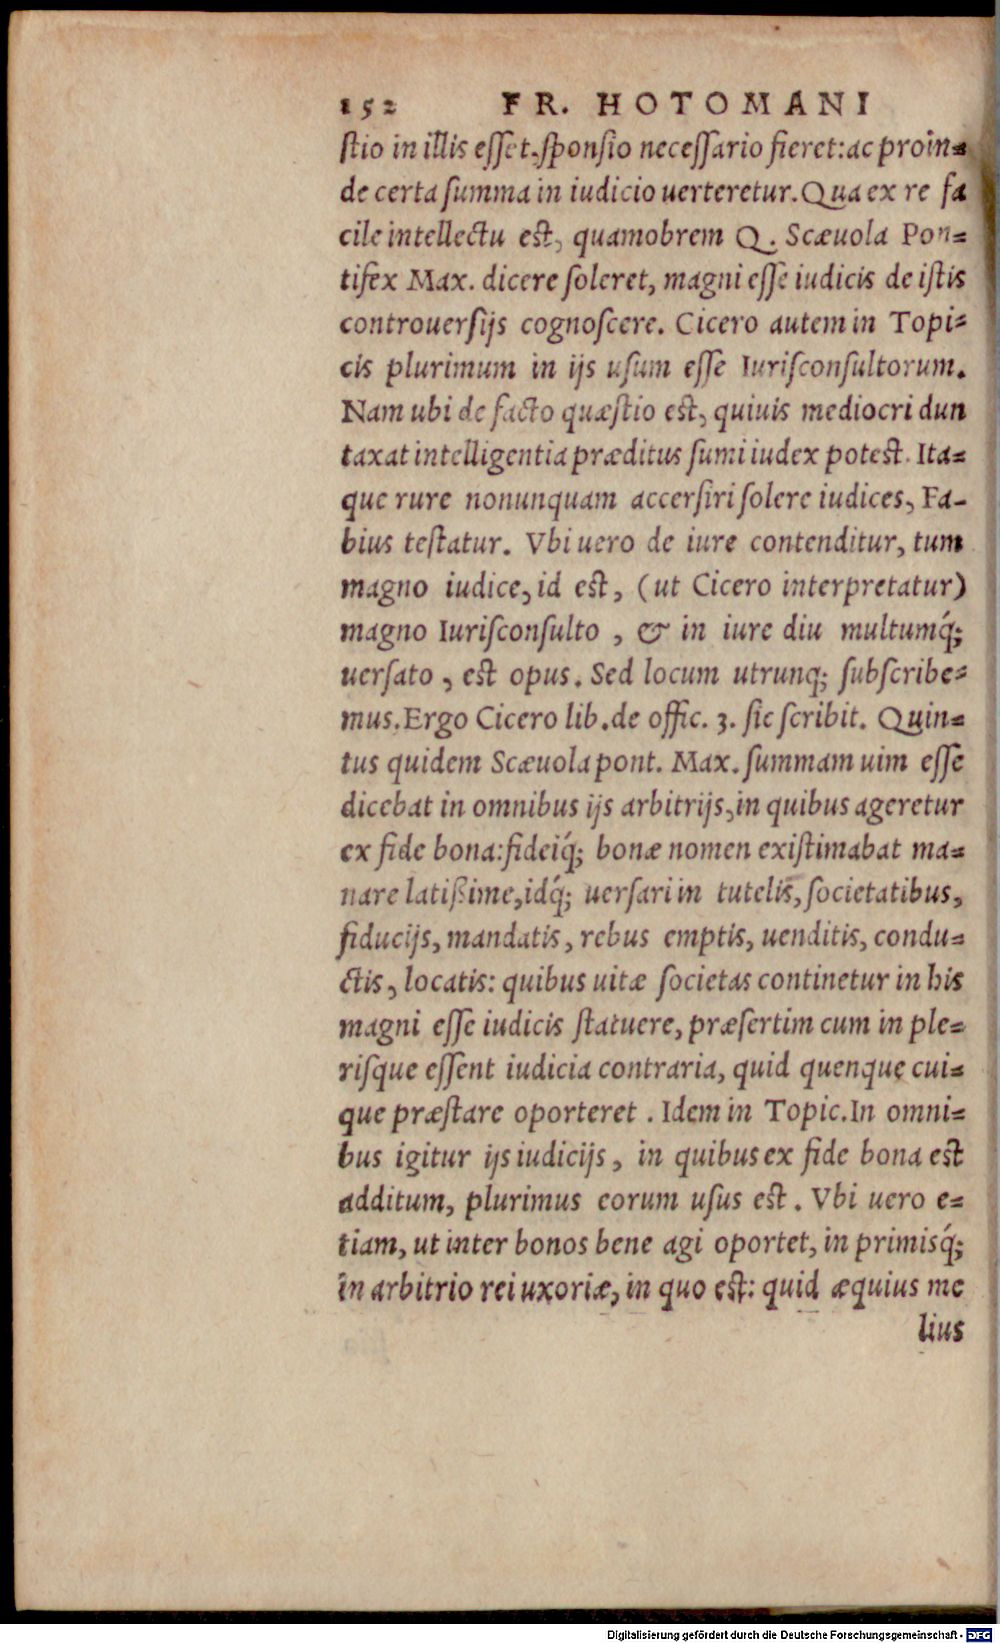 152 FR. HOTOMANI
ſtio in illis eſſet, ſponſio neceſſario fieret: ac proin⸗
de certa ſumma in iudicio uerteretur. Qua ex re fa
cile intellectu est, quamobrem Q. Scæuola Pon⸗
tifex Max. dicere ſoleret, magni eſſe iudicis de iſtis
controuerſijs cognoſcere. Cicero autem in Topi⸗
cis plurimum in ijs uſum eſſe Iuriſconſultorum.
Nam ubi de facto quæſtio est, quiuis mediocri dun
taxat intelligentia præditus ſumi iudex potest. Ita⸗
que rure nonunquam accerſiri ſolere iudices, Fa-
bius teſtatur. Vbi uero de iure contenditur, tum
magno iudice, id est, (ut Cicero interpretatur)
magno Iuriſconſulto, & in iure diu multumq́;
uerſato, est opus. Sed locum utrunq; ſubſcribe⸗
mus. Ergo Cicero lib. de offic. 3. ſic ſcribit. Quin⸗
tus quidem Scæuola pont. Max. ſummam uim eſſe
dicebat in omnibus ijs arbitrijs, in quibus ageretur
ex fide bona: fideiq́; bonæ nomen exiſtimabat ma⸗
nare latißime, idq́; uerſari in tutelis, ſocietatibus,
fiducijs, mandatis, rebus emptis, uenditis, condu⸗
ctis, locatis: quibus uitæ ſocietas continetur in his
magni eſſe iudicis ſtatuere, præſertim cum in ple⸗
riſque eſſent iudicia contraria, quid quenque cui⸗
que præſtare oporteret. Idem in Topic. In omni⸗
bus igitur ijs iudicijs, in quibus ex fide bona est
additum, plurimus eorum uſus est. Vbi uero e⸗
tiam, ut inter bonos bene agi oportet, in primisq́;
in arbitrio rei uxoriæ, in quo est: quid æquius me
lius
Digitalisierung gefördert durch die Deutsche Forschungsgemeinschaft - DFG